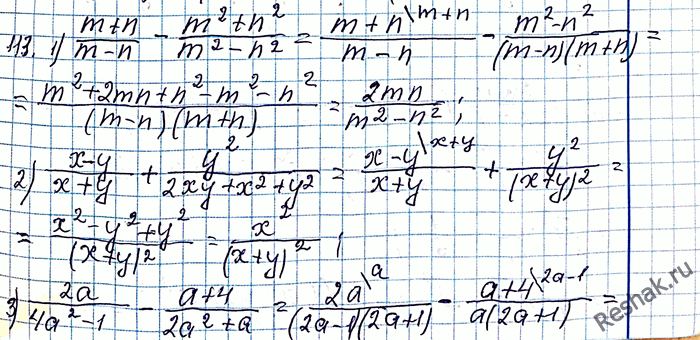 113. 1) (m+n)/(m-n) - (m²+n²)/(m²-n²) = (m+n\m+n)/(m-n) - (m²-n²)/((m-n)(m+n)) =
= (m²+2mn+n²-m²-n²)/((m-n)(m+n)) = 2mn/(m²-n²);
2) (x-y)/(x+y) + y²/(2xy+x²+y²) = (x-y\x+y)/(x+y) + y²/(x+y)² =
= (x²-y²+y²)/(x+y)² = x²/(x+y)²;
3) 2a/(4a²-1) - (a+4)/(2a²+a) = (2a\a)/((2a-1)(2a+1)) - (a+4\2a-1)/(a(2a+1)) =
Reshak.ru